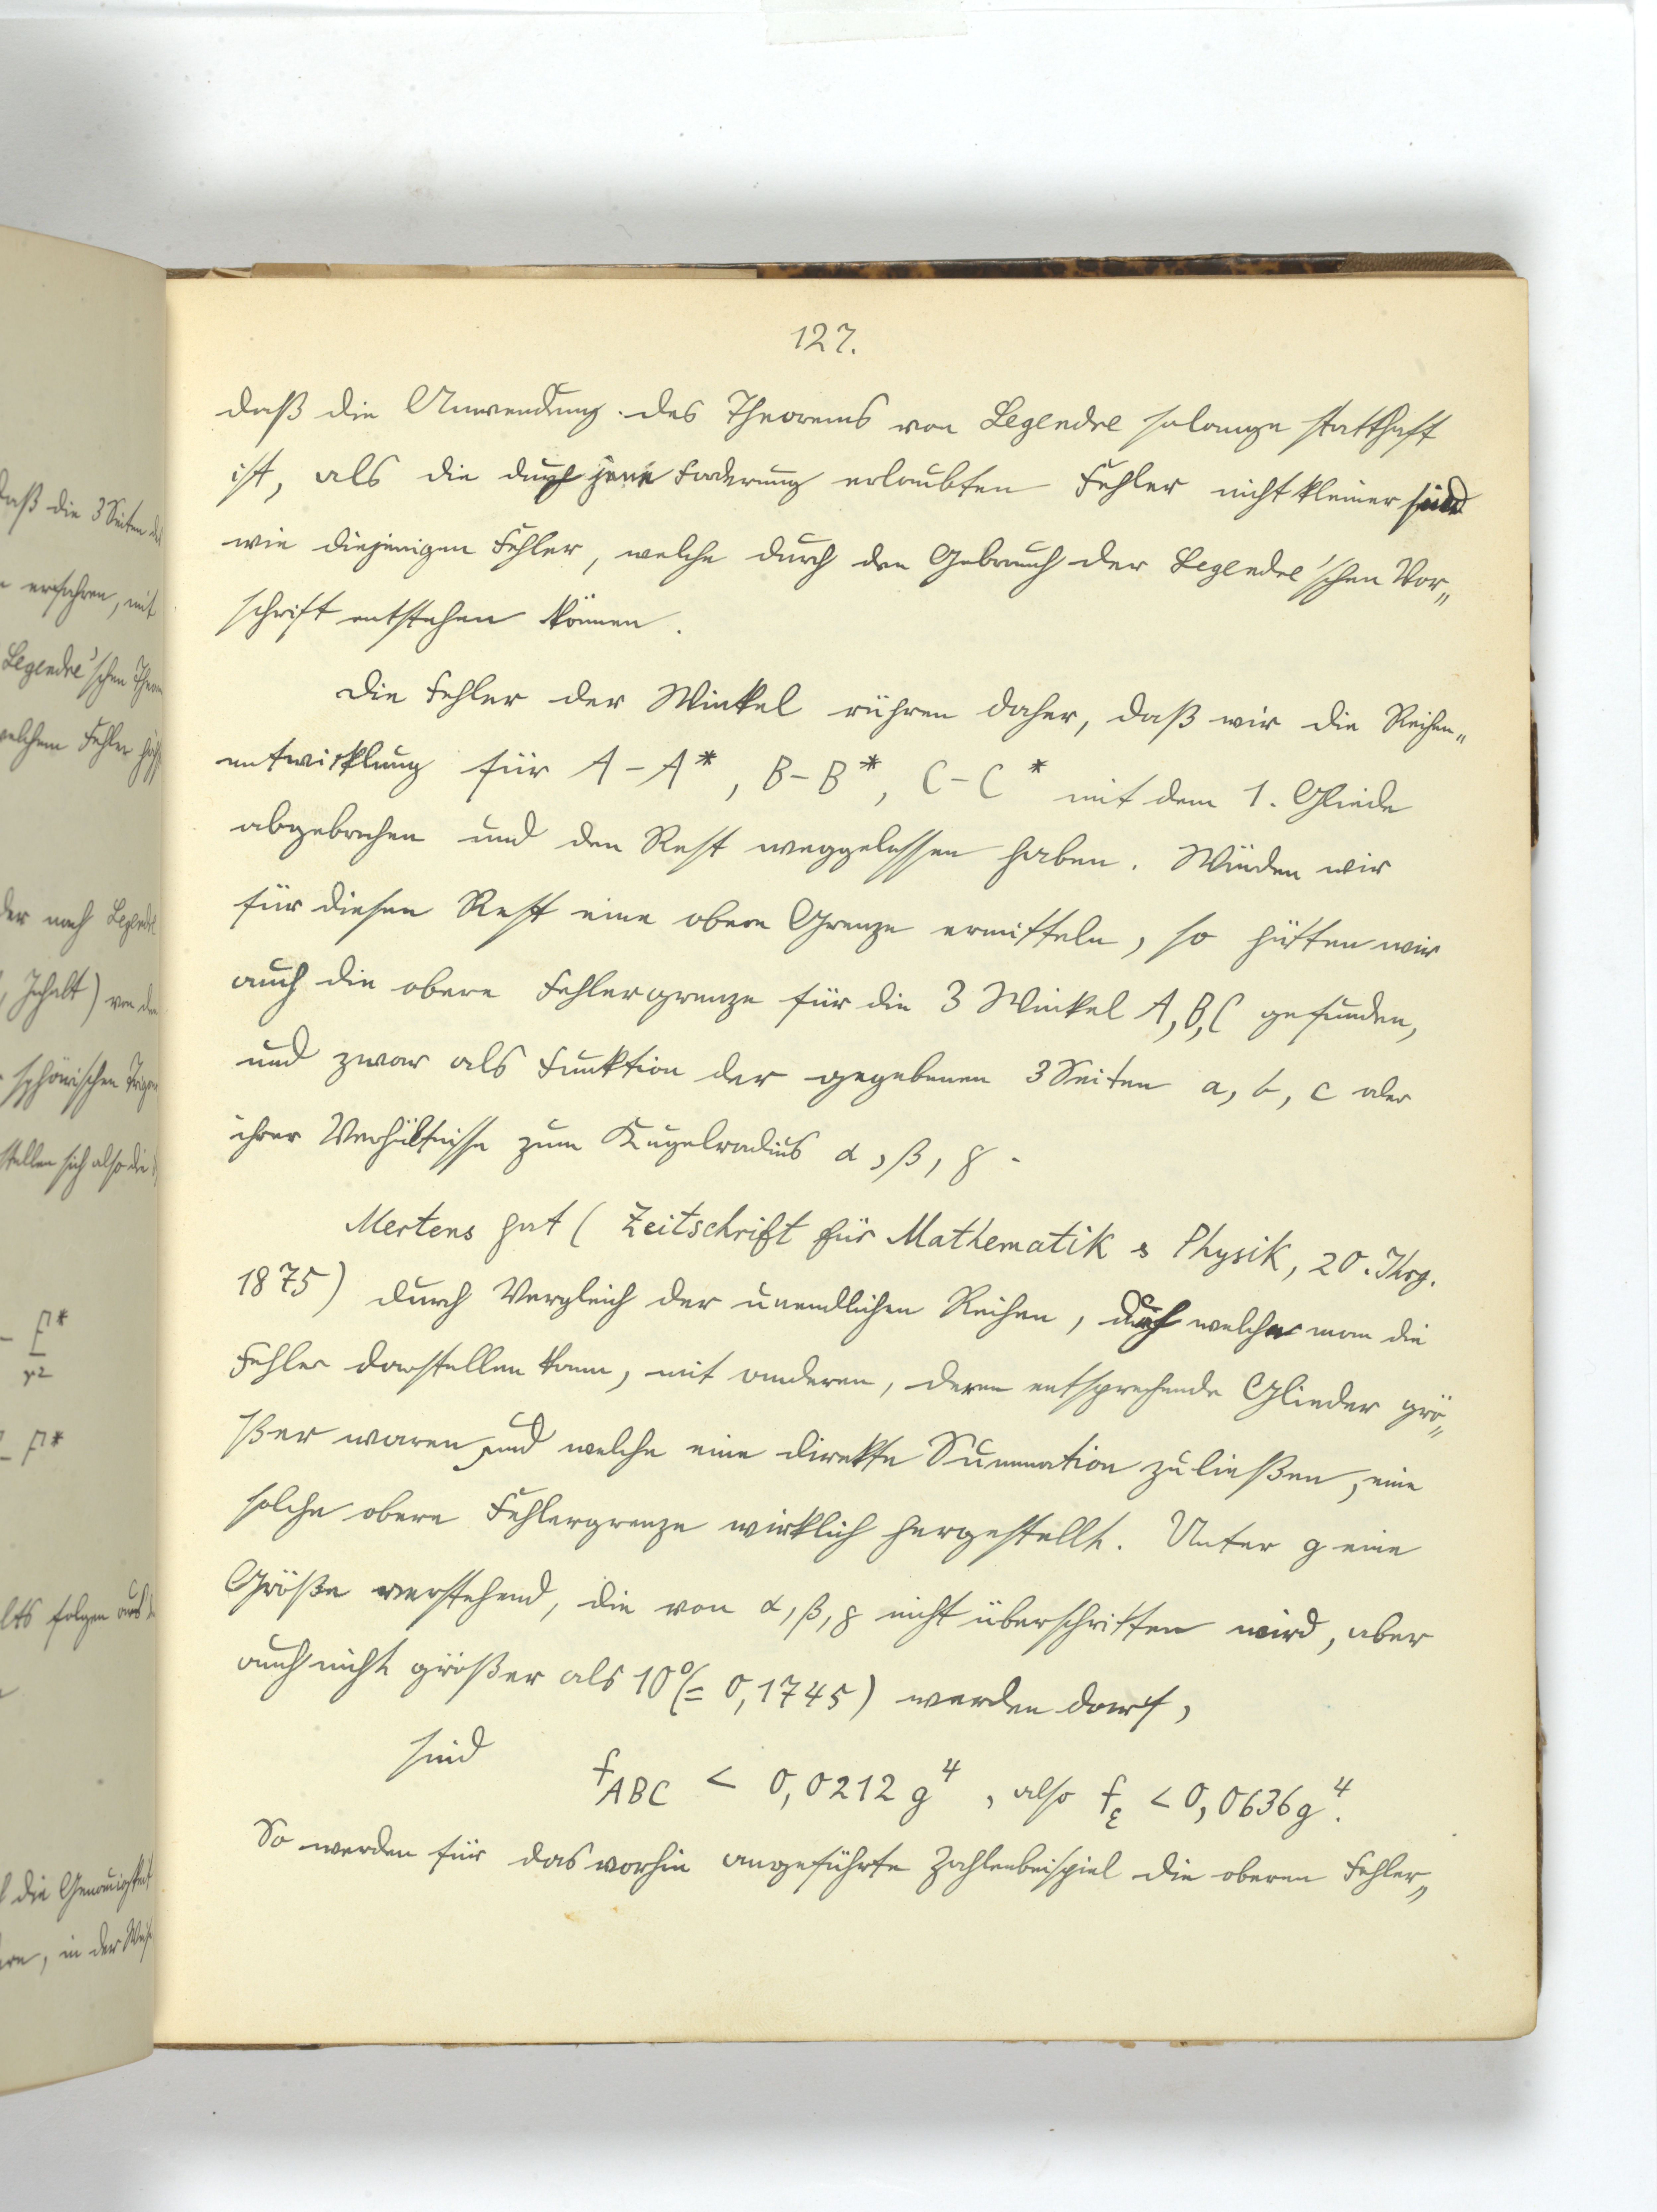 127.
daß die Anwendung des Theorems von Legendre solange statthaft
ist, als die durch jene Forderung erlaubten Fehler nicht kleiner sind
wie diejenigen Fehler, welche durch den Gebrauch der Legendre'schen Vor„
schrift entstehen können.
Die Fehler der Winkel rühren daher, daß wir die Reihen„
entwicklung für A-A*, B-B*, C-C* mit dem 1. Gliede
abgebrochen und den Rest weggelassen haben. Würden wir
für diesen Rest eine obere Grenze ermitteln, so hätten wir
auch die obere Fehlergrenze für die 3 Winkel A, B, C gefunden,
und zwar als Funktion der gegebenen 3 Seiten a, b, c oder
ihrer Verhältnisse zum Kugelradius α, β, γ.
Mertens hat (Zeitschrift für Mathematik & Physik, 20. Jhrg.
1875) durch Vergleich der unendlichen Reihen, durch welche man die
Fehler darstellen kann, mit anderen, deren entsprechende Glieder grö„
ßer waren und welche eine direkte Summation zuließen, eine
solche obere Fehlergrenze wirklich hergestellt. Unter g eine
Größe verstehend, die von α, β, γ nicht überschritten wird, aber
auch nicht größer als 10° (= 0,1745) werden darf,
sind f_ABC < 0,0212 g⁴, also f_ε < 0,0636 g⁴.
So werden für das vorhin angeführte Zahlenbeispiel die oberen Fehler„
daß die 3 Seiten
erfahren, mit
Legendre'schen
welchem Fehler
der nach Legendre
, Inhalt) von den
sphärischen
stellen sich also die
- E*/r²
- F*
folgen aus
die Genauigkeit
, in der